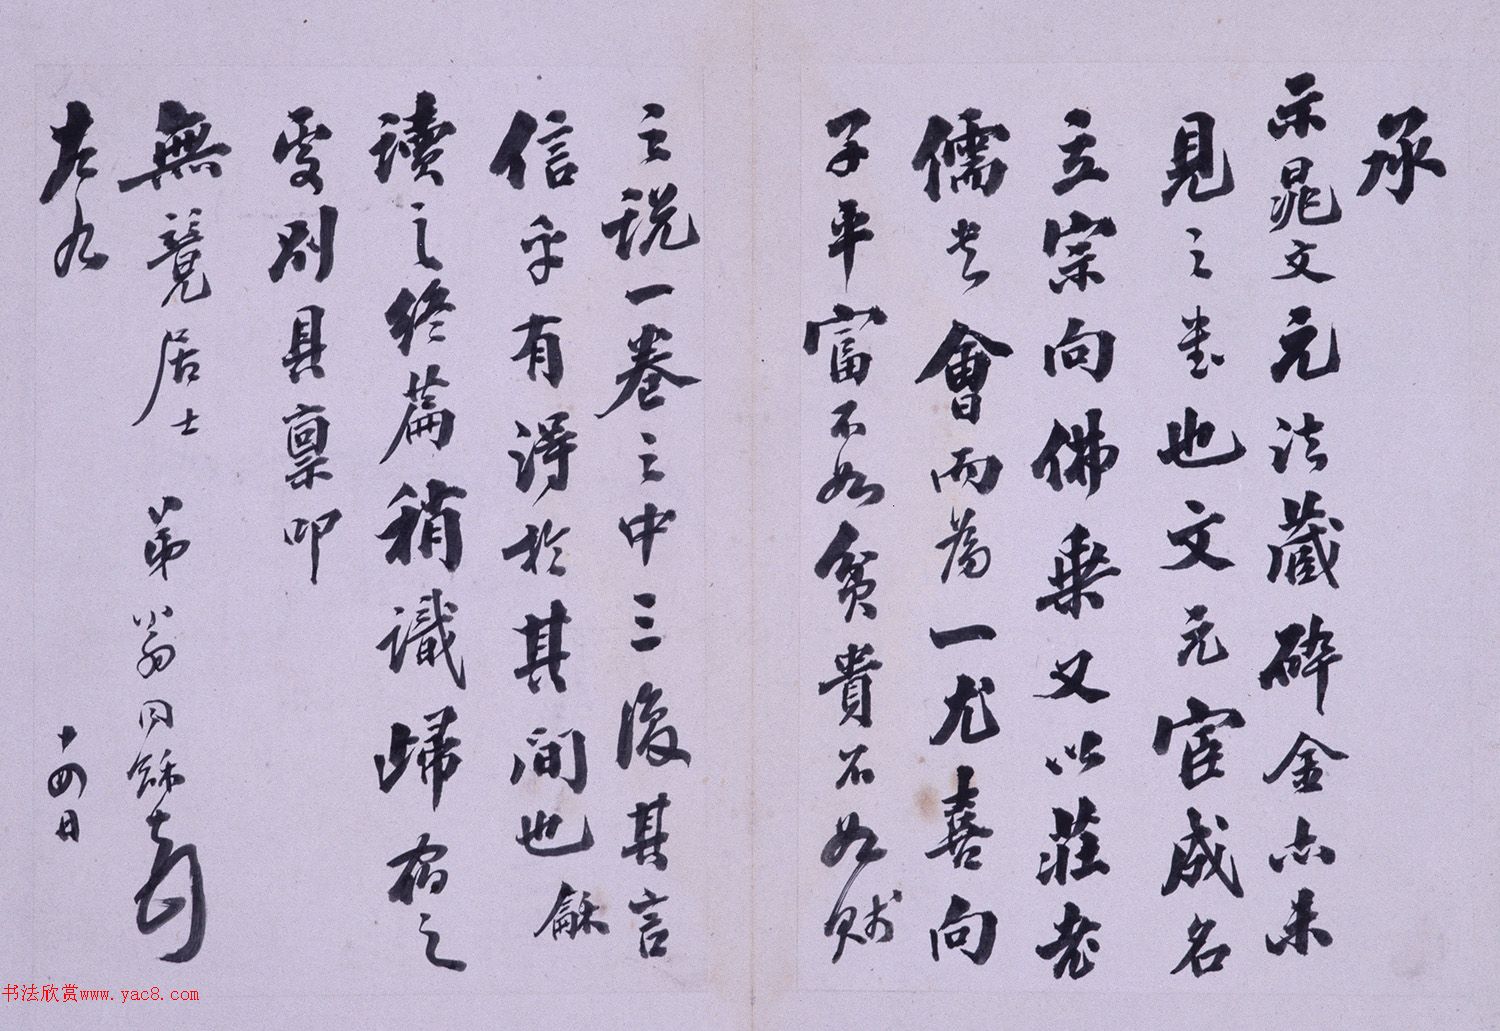 承
示晁文元法藏碎金亦未
見之書也文元宦成名
立宗向佛乘又以莊老
儒書會而為一尤喜向
子平富不如貧貴不如賤
之說一卷之中三復其言
信乎有得於其間也龢
讀之終篇稍識歸宿之
處別具稟叩
無競居士 弟翁同龢頓
左右
十四日
书法欣赏www.yac8.com